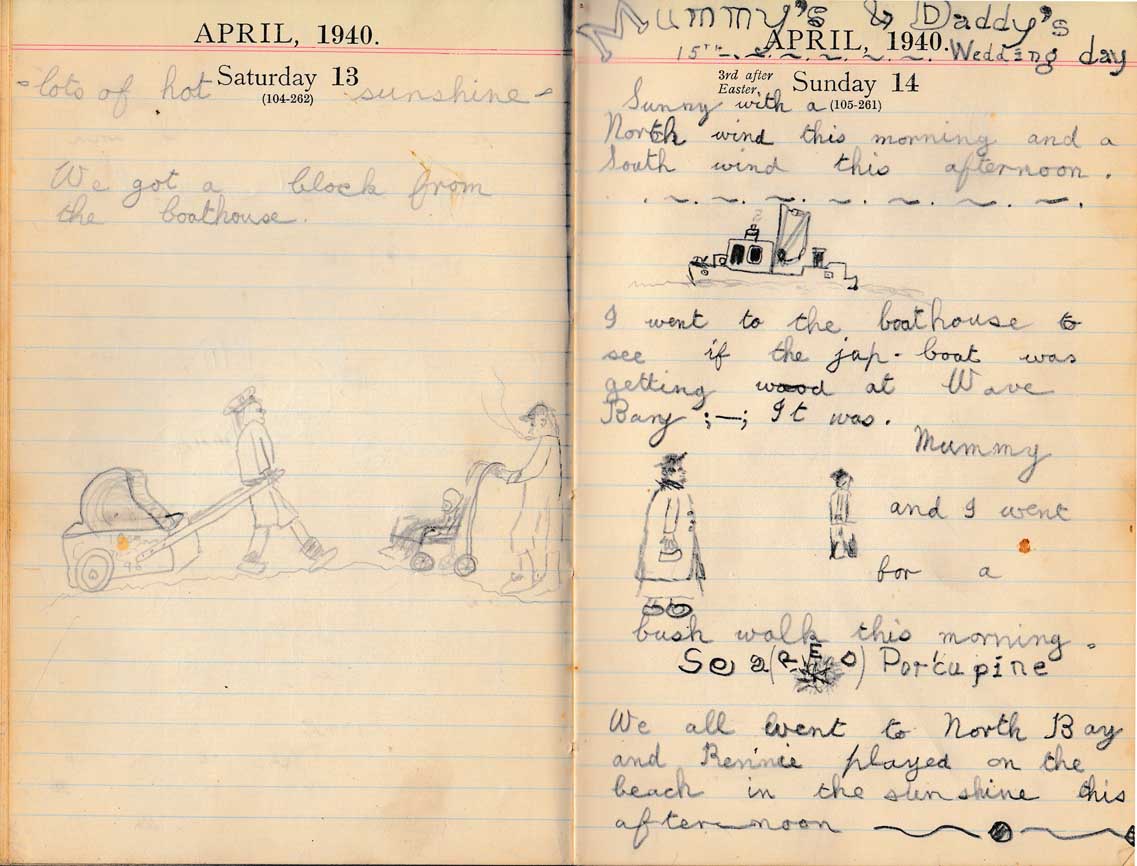 APRIL, 1940.
Saturday 13
(104-262)
lots of hot sunshine
We got a block from
the boathouse.
Mummy's & Daddy's
15TH Wedding day
APRIL, 1940.
3rd after
Easter.
Sunday 14
(105-261)
Sunny with a
North wind this morning and a
South wind this afternoon.
I went to the boathouse to
see if the jap-boat was
getting wood at Wave
Bany ;—; It was.
Mummy
and I went
for a
bush walk this morning.
Porcupine
We all went to North Bay
and Rennie played on the
beach in the sunshine this
afternoon